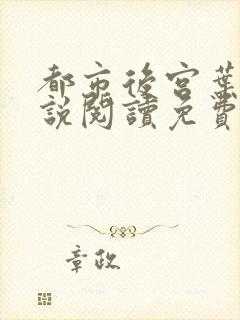 都市後宮葉
說閱讀免費
章政